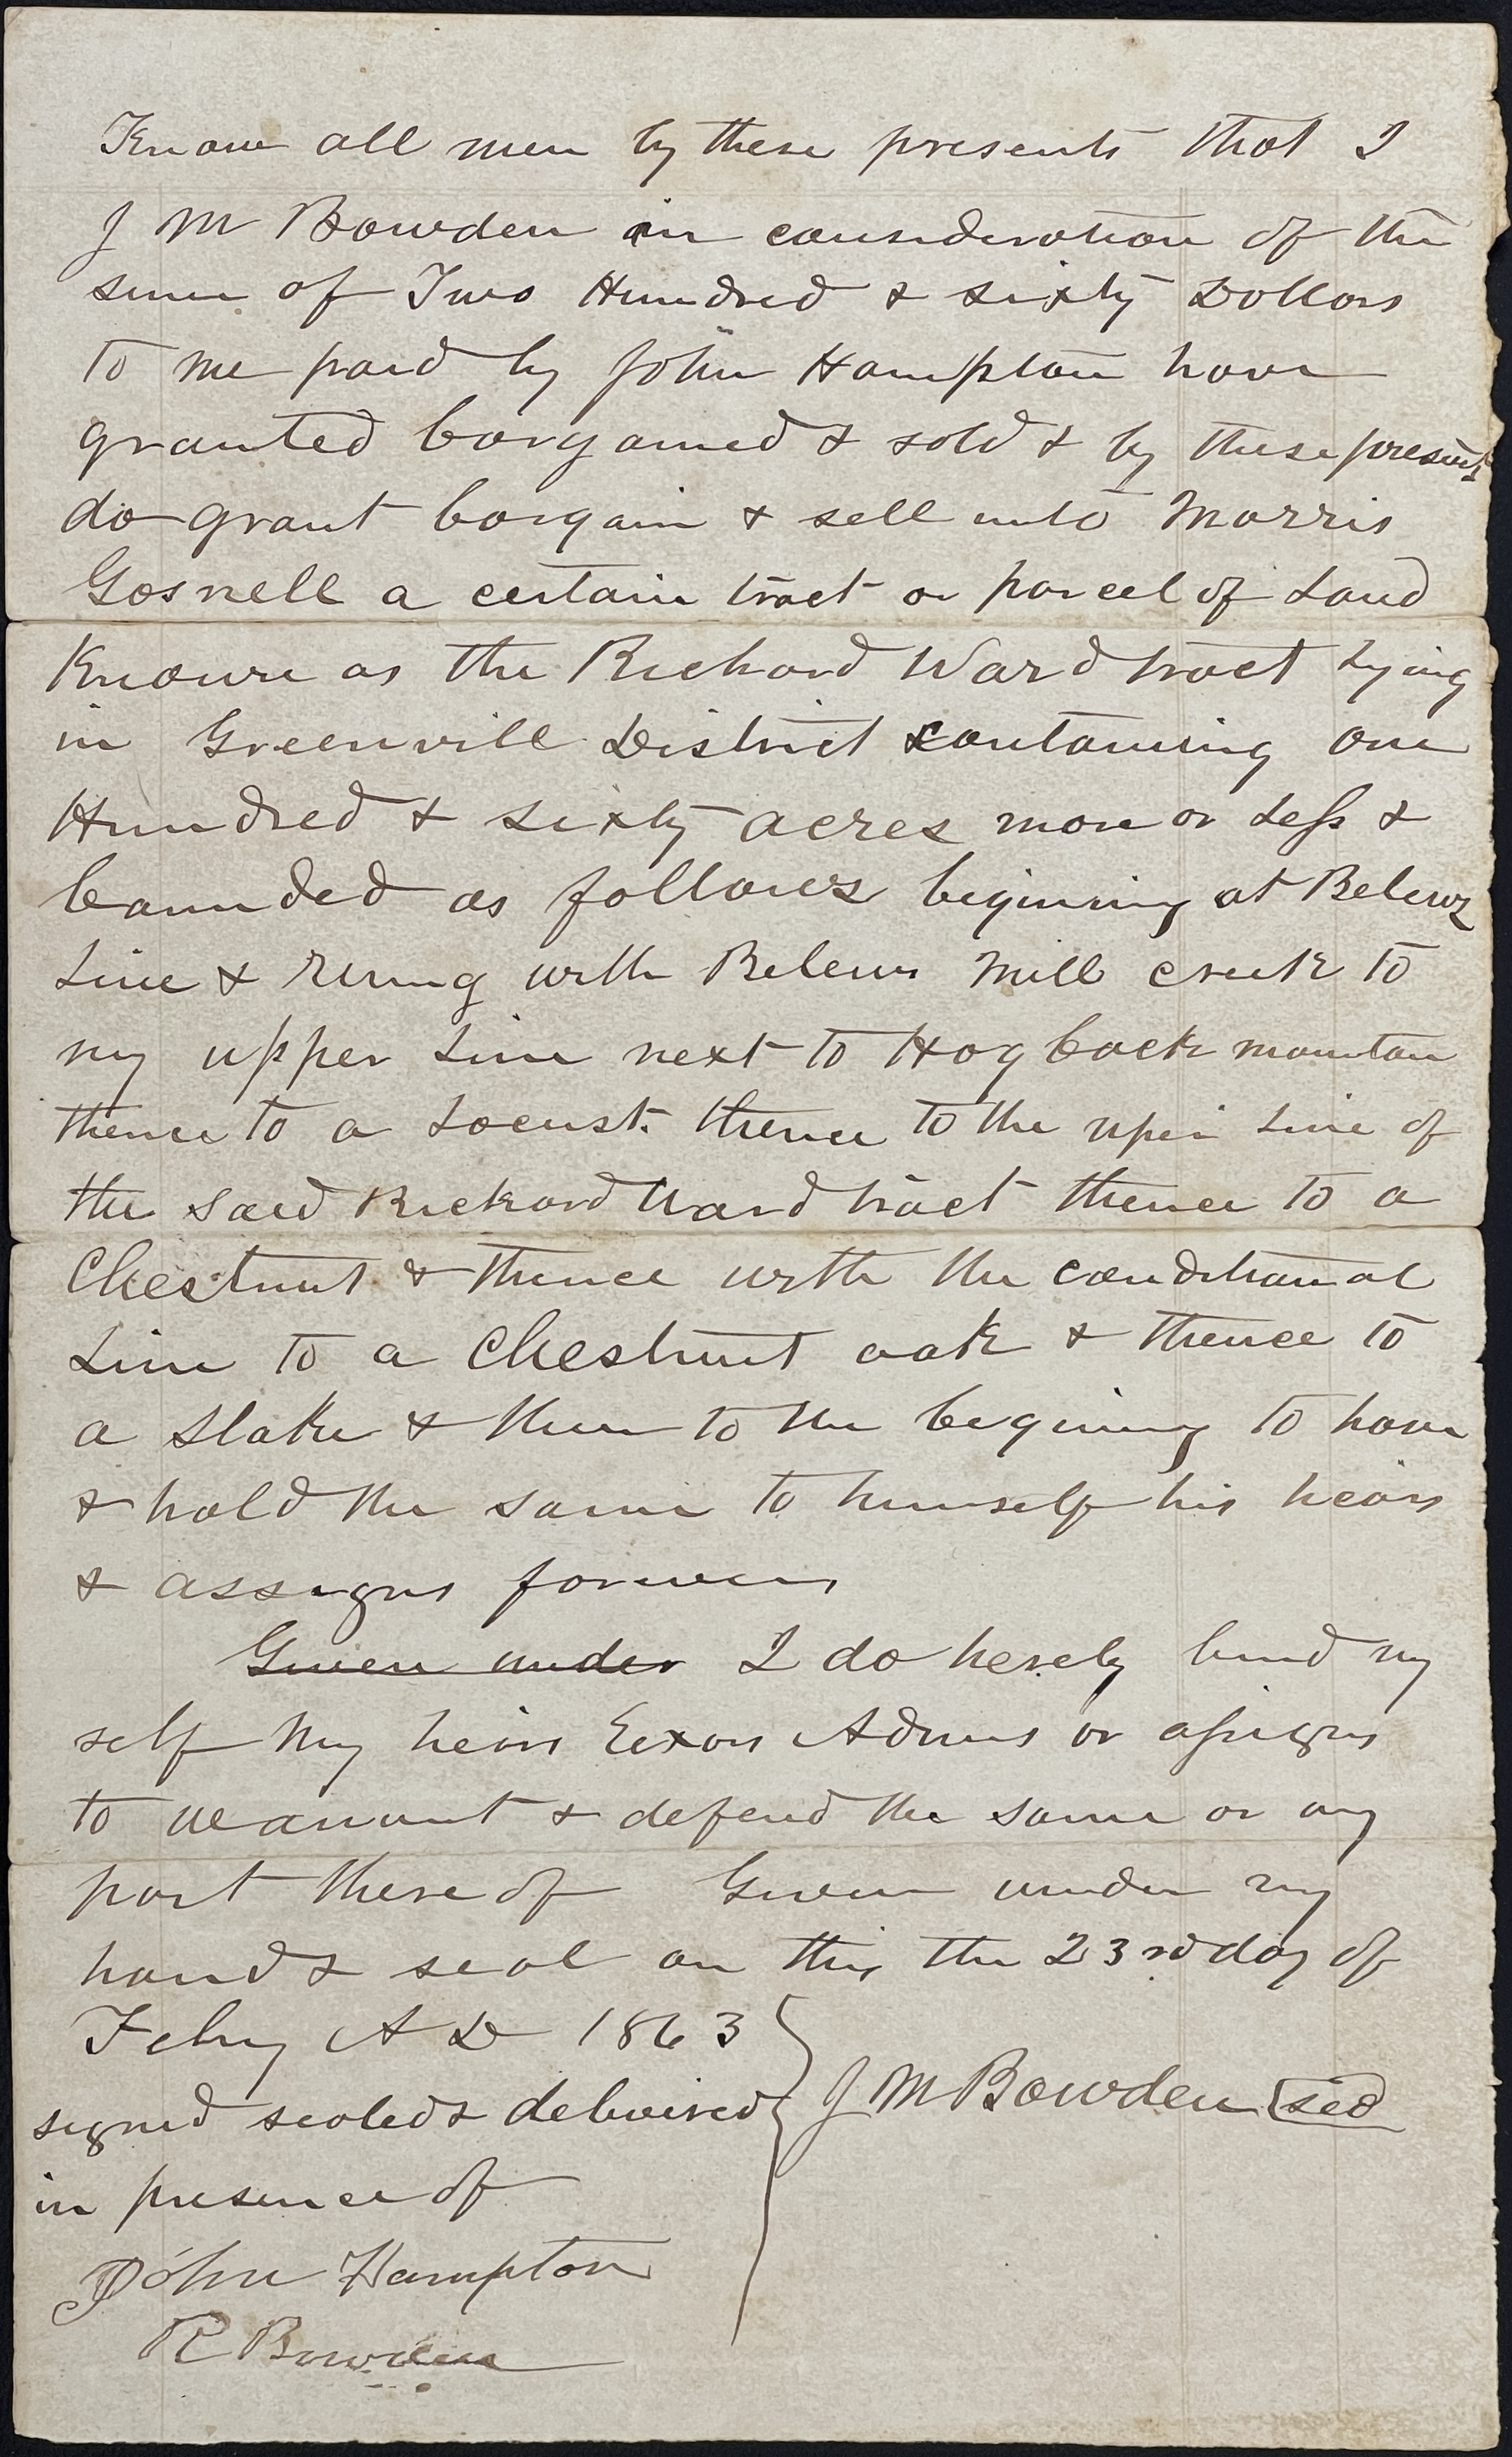 Know all men by these presents that I
J M Bowden in consideration of the
sum of Two Hundred & sixty Dollars
to me paid by John Hampton have
granted bargained & sold & by these presents
do grant bargain & sell unto Morris
Gosnell a certain tract or parcel of Land
Known as the Richard Ward tract Lying
in Greenvill District containing one
Hundred & sixty acres more or Less &
bounded as follows begining at Belews
Line & runing with Belews Mill creek to
my upper Line next to Hog back mountain
thence to a Locust thence to the uper Line of
the said Richard Ward tract thence to a
Chestnut & thence with the conditional
Line to a Chestnut oak & thence to
a Stake & then to the begining to have
& hold the same to himself his heirs
& assigns forever
Given under I do hereby bind my
self my heirs Exors Admrs or assigns
to warrant & defend the same or any
part there of Given under my
hand & seal on this the 23rd day of
Feby A D 1863
signed sealed & delivered J M Bowden
in presence of
John Hampton
R Bowden